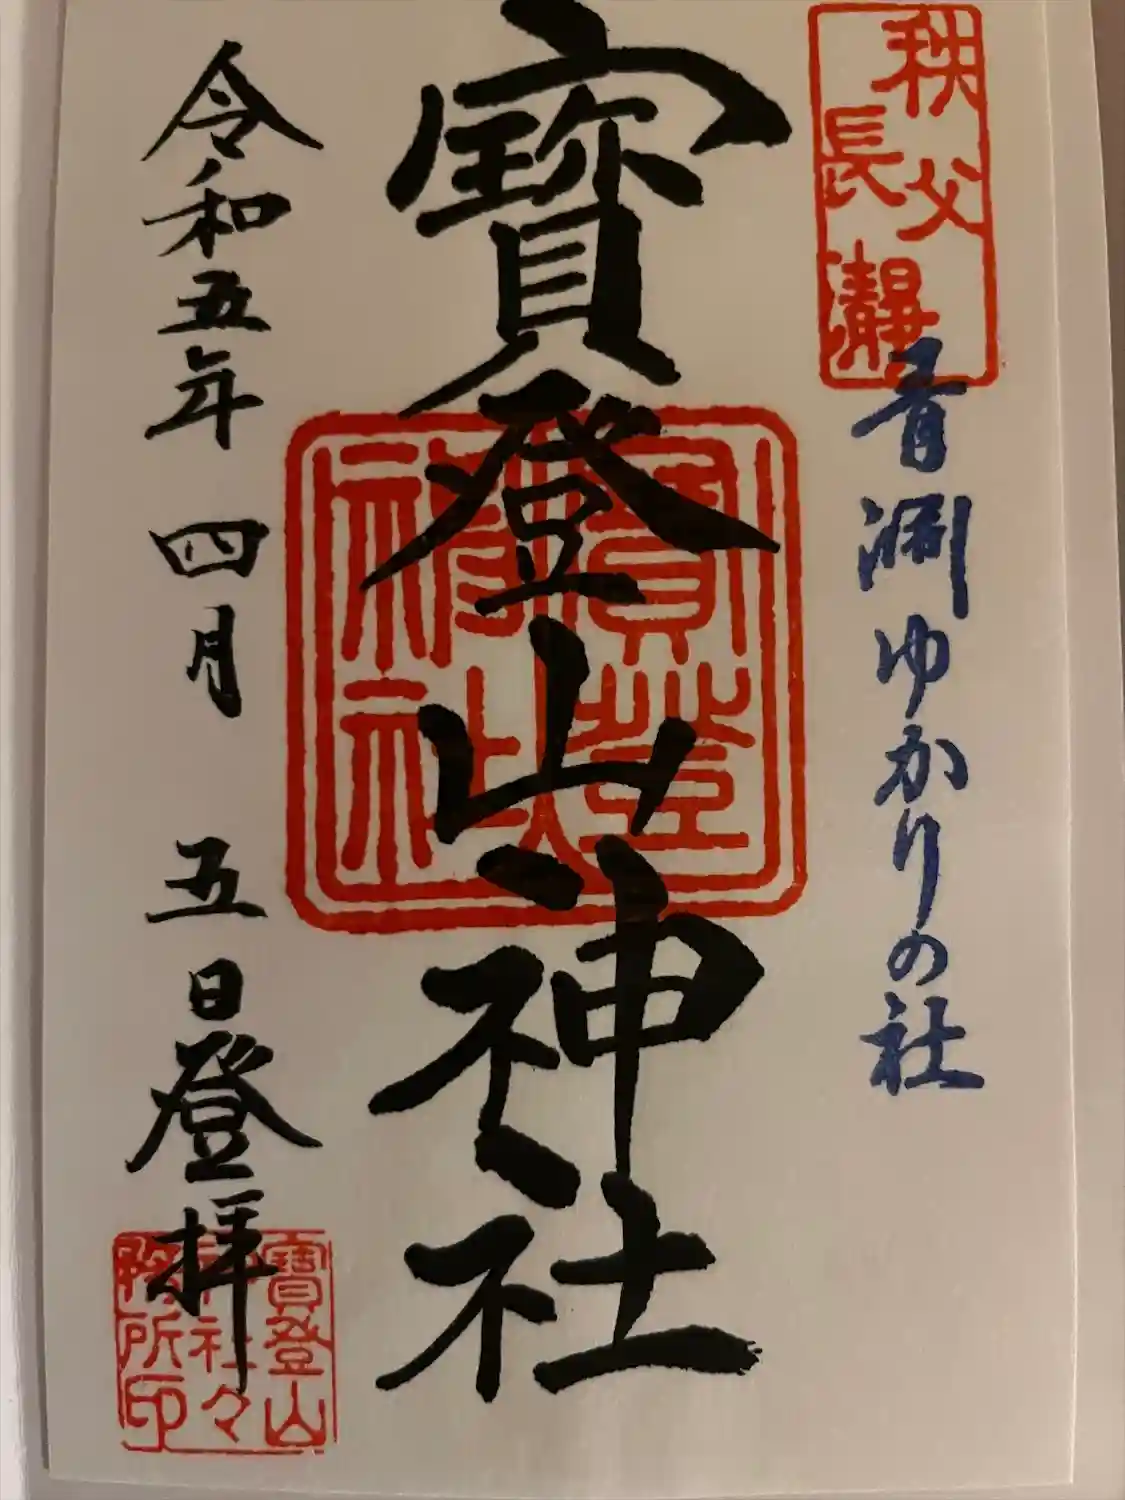 秩父
長瀞
青淵ゆかりの社
寶登山神社
寶登山
神社
令和五年 四月 五日登拝
寶登山
神社々
務所印